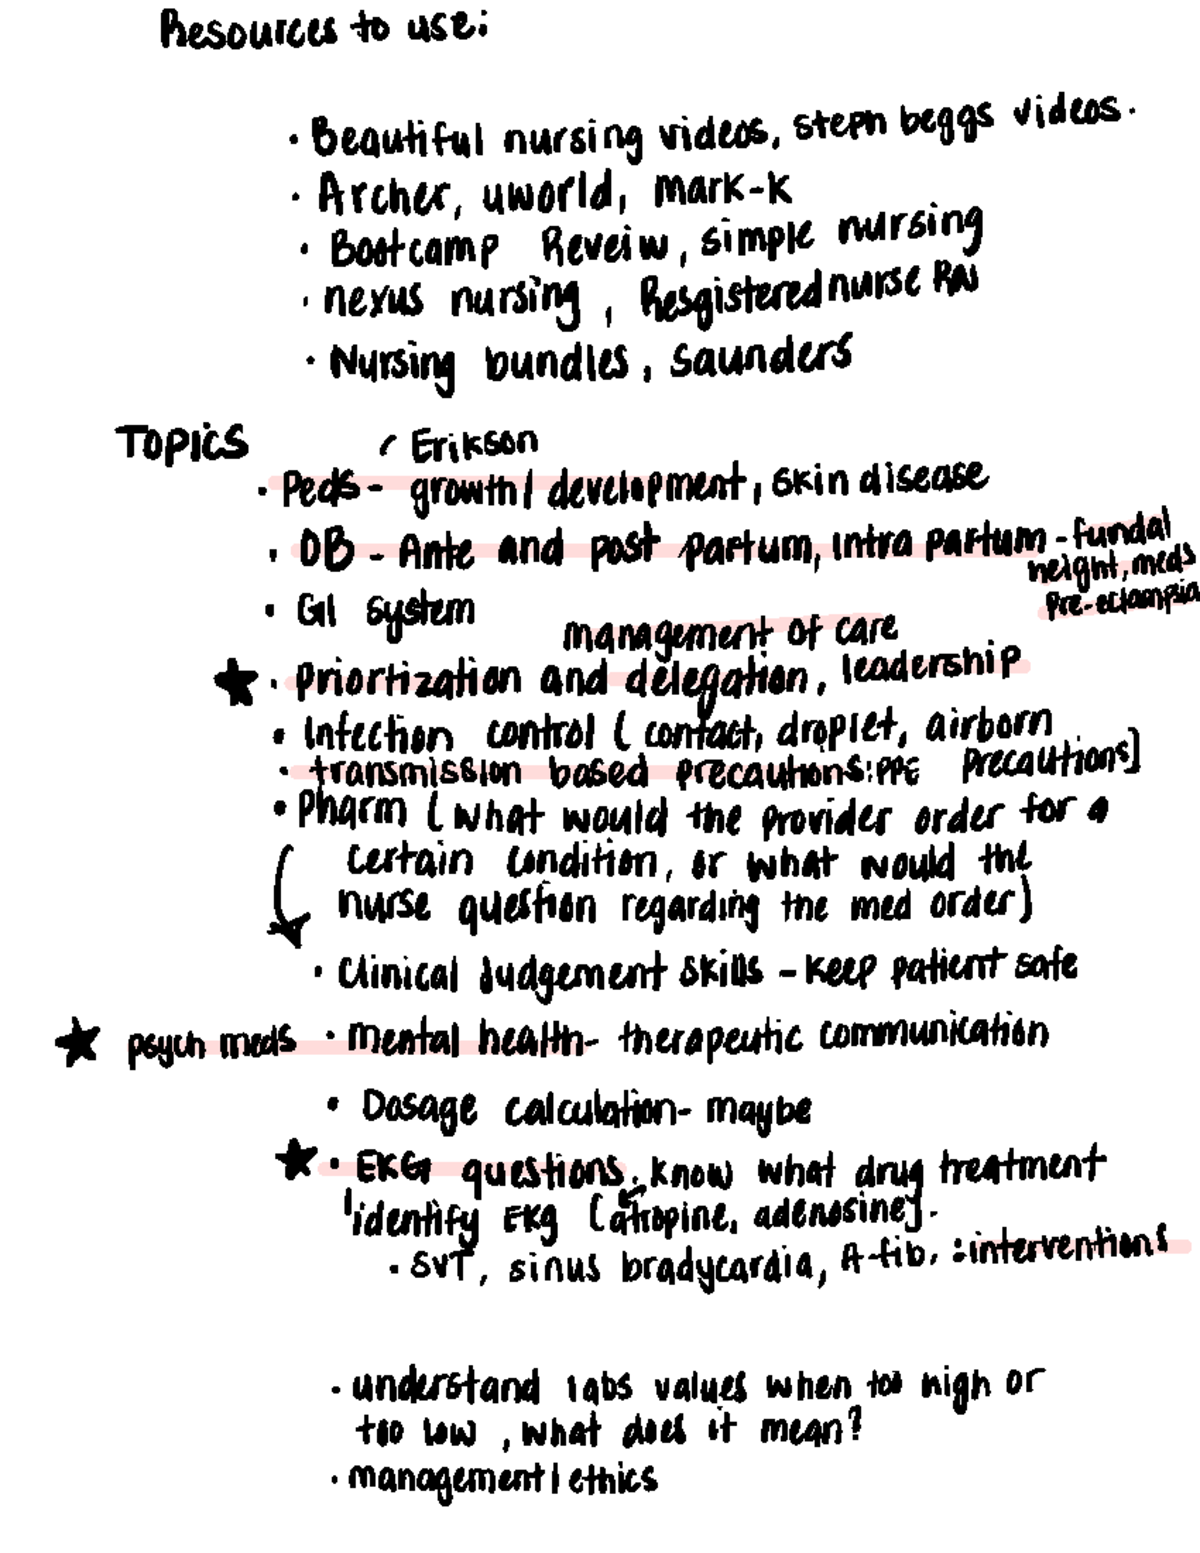 Resources to use:
• Beautiful nursing videos, steph beggs videos.
• Archer, uworld, mark-k
• Bootcamp Reveiw, simple nursing
• nexus nursing, Resgistered nurse RN
• Nursing bundles, saunders
TOPICS
( Erikson
• Peds - growth/development, skin disease
• OB - Ante and post partum, intra partum - fundal
height, meds
Pre-eclampsia
• GI system
management of care
★ • Priortization and delegation, leadership
• Infection control ( contact, droplet, airborn
Precautions]
• transmission based precautions: PPE
• Pharm ( what would the provider order for a
certain condition, or what would the
nurse question regarding the med order)
• Clinical Judgement skills - keep patient safe
★ psych meds • mental health- therapeutic communication
• Dosage calculation- maybe
★ • EKG questions. Know what drug treatment
identify EKg [atropine, adenosine].
• SVT, sinus bradycardia, A-fib, : interventions
• understand labs values when too high or
too low, what does it mean?
• management/ethics